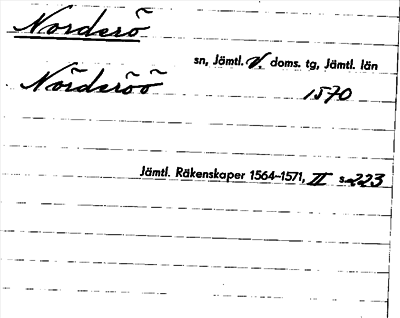 Norderö
sn, Jämtl. V. doms. tg, Jämtl. län
Nördsöö 1570
Jämtl. Räkenskaper 1564–1571, II s. 223